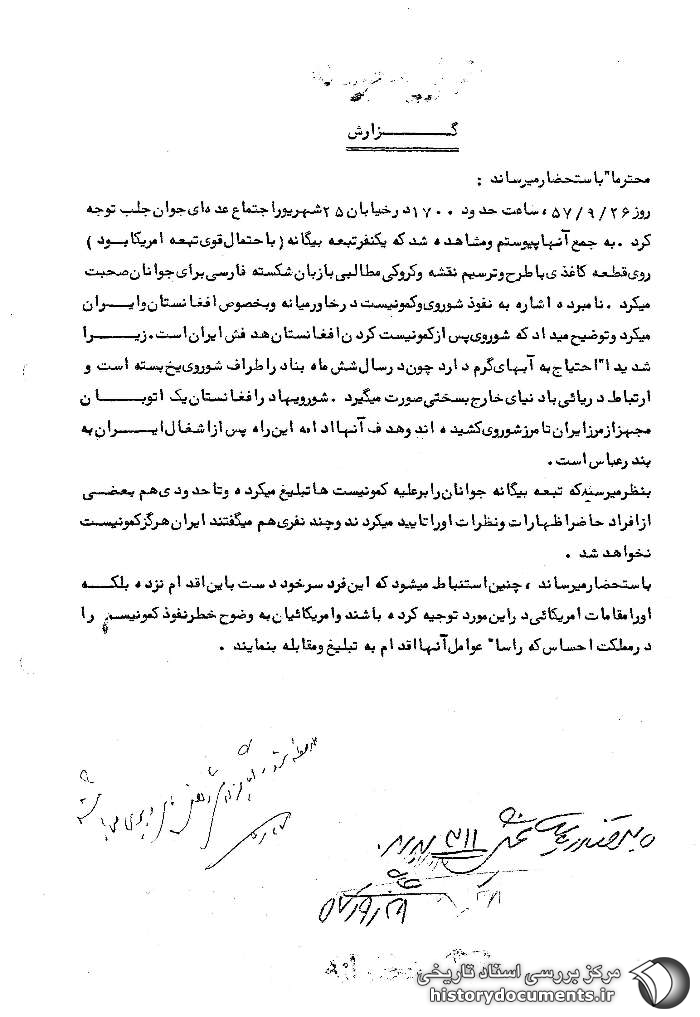 گزارش
محترما" باستحضار میرساند :
روز ۵۷/۹/۲۶، ساعت حدود ۱۷۰۰ در خیابان ۲۵ شهریور اجتماع عده ای جوان جلب توجه
کرد . به جمع آنها پیوستم و مشاهده شد که یکنفر تبعه بیگانه ( با احتمال قوی تبعه امریکا بود )
روی قطعه کاغذی با طرح و ترسیم نقشه و کروکی مطالبی با زبان شکسته فارسی برای جوانان صحبت
میکرد . نامبرده اشاره به نفوذ شوروی و کمونیست در خاورمیانه و بخصوص افغانستان و ایران
میکرد و توضیح میداد که شوروی پس از کمونیست کردن افغانستان هدفش ایران است . زیرا
شدیدا" احتیاج به آبهای گرم دارد چون در سال شش ماه بنادر اطراف شوروی یخ بسته است و
ارتباط دریائی با دنیای خارج بسختی صورت میگیرد . شورویها در افغانستان یک اتوبان
مجهز از مرز ایران تا مرز شوروی کشیده اند و هدف آنها ادامه این راه پس از اشغال ایران به
بندرعباس است .
بنظر میرسید که تبعه بیگانه جوانان را بر علیه کمونیست ها تبلیغ میکرده و تا حدودی هم بعضی
از افراد حاضر اظهارات و نظرات او را تایید میکردند و چند نفری هم میگفتند ایران هرگز کمونیست
نخواهد شد .
باستحضار میرساند ، چنین استنباط میشود که این فرد سرخود دست باین اقدام نزده بلکه
او را مقامات امریکائی در این مورد توجیه کرده باشند و امریکائیان به وضوح خطر نفوذ کمونیسم را
در مملکت احساس که راسا" عوامل آنها اقدام به تبلیغ و مقابله بنمایند .
۳۱۱
مرکز بررسی اسناد تاریخی
historydocuments.ir